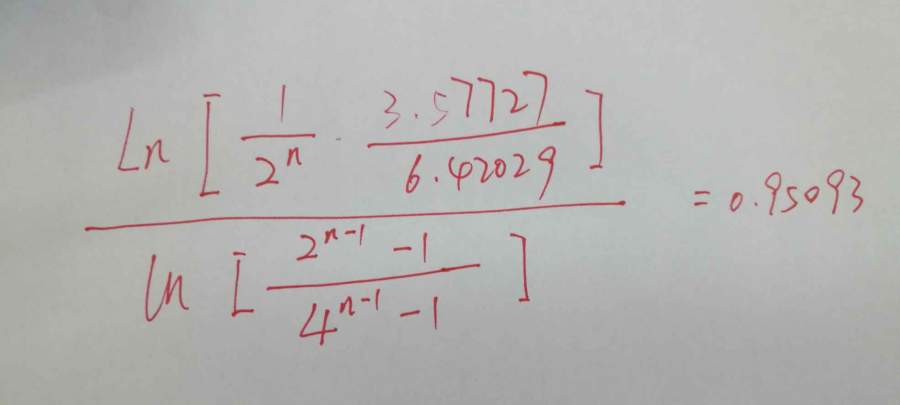 Ln [ 1/2^n · 3.57727/6.42029 ]
ln [ 2^{n-1} - 1 / 4^{n-1} - 1 ] = 0.95093